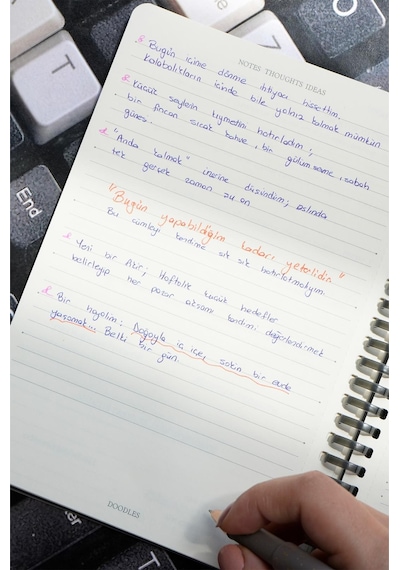 NOTES THOUGHTS IDEAS
Bugün içime dönme ihtiyacı hissettim.
Kalabalıkların içinde bile yalnız kalmak mümkün
Küçük şeylerin kıymetini hatırladım:
bir fincan sıcak kahve, bir gülümseme, sabah
güneşi.
"Anda kalmak" üzerine düşündüm; aslında
tek gerçek zaman şu an
"Bugün yapabildiğim kadarı yeterlidir."
Bu cümleyi kendime sık sık hatırlatmalıyım.
Yeni bir fikir; Haftalık küçük hedefler
belirleyip her pazar akşamı kendimi değerlendirmek
Bir hayalim: Doğayla iç içe, sakin bir evde
yaşamak... Belki bir gün.
DOODLES
T
End
T